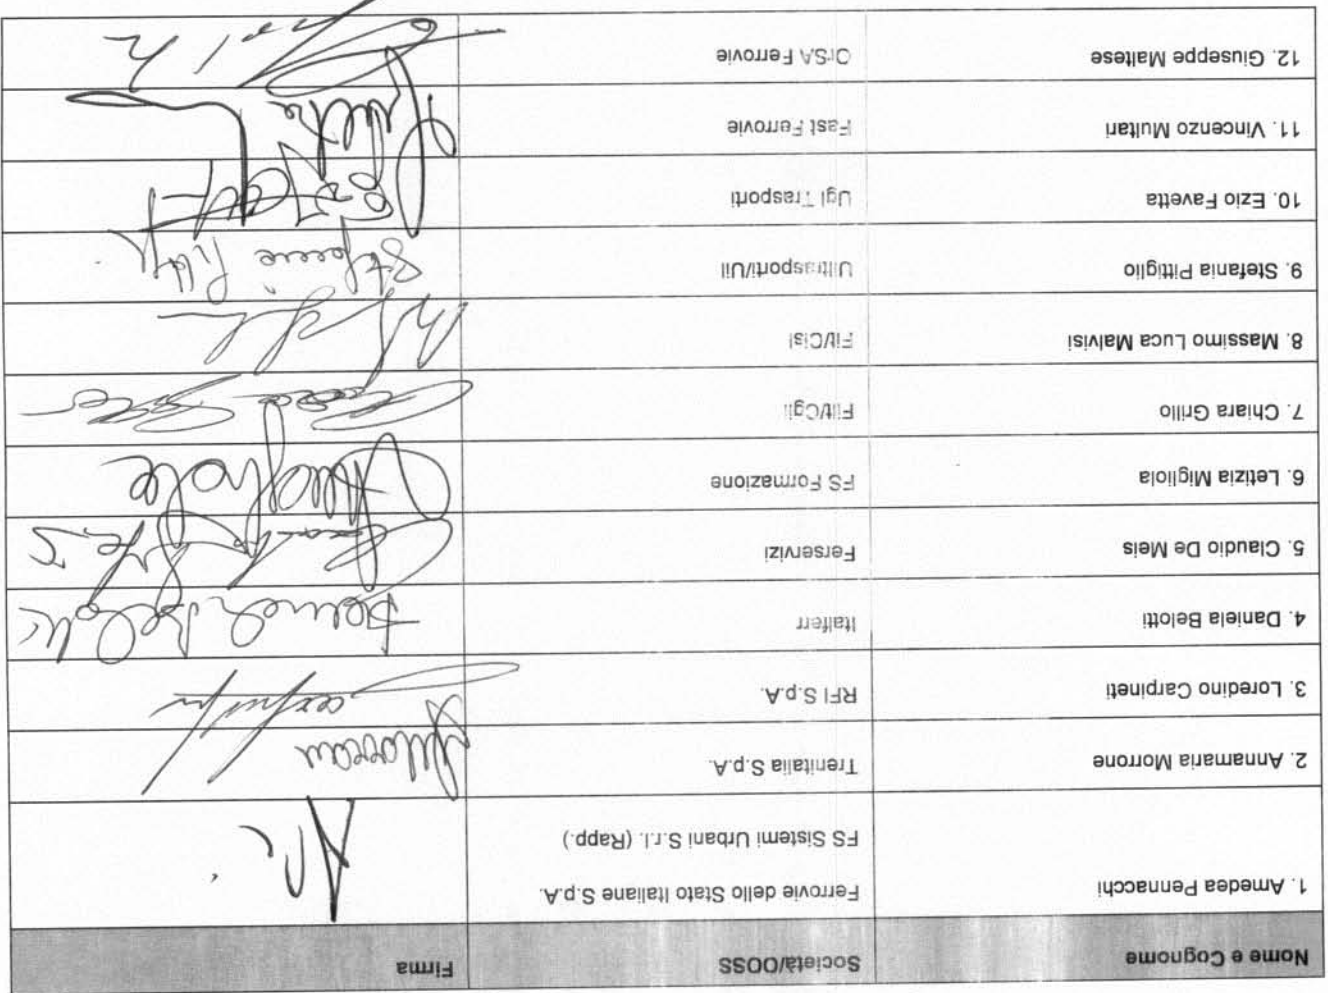 Nome e Cognome Società/OOSS Firma
1. Amedea Pennacchi Ferrovie dello Stato Italiane S.p.A.
FS Sistemi Urbani S.r.l. (Rapp.)
2. Annamaria Morrone Trenitalia S.p.A. AMorrone
3. Loredino Carpineti RFI S.p.A.
4. Daniela Belotti Italferr Daniela Belotti
5. Claudio De Meis Ferservizi
6. Letizia Migliola FS Formazione
7. Chiara Grillo Filt/Cgil
8. Massimo Luca Malvisi Fit/Cisl
9. Stefania Pittiglio Uiltrasporti/Uil Stefania
10. Ezio Favetta Ugl Trasporti
11. Vincenzo Multari Fast Ferrovie
12. Giuseppe Maltese Or.S.A Ferrovie